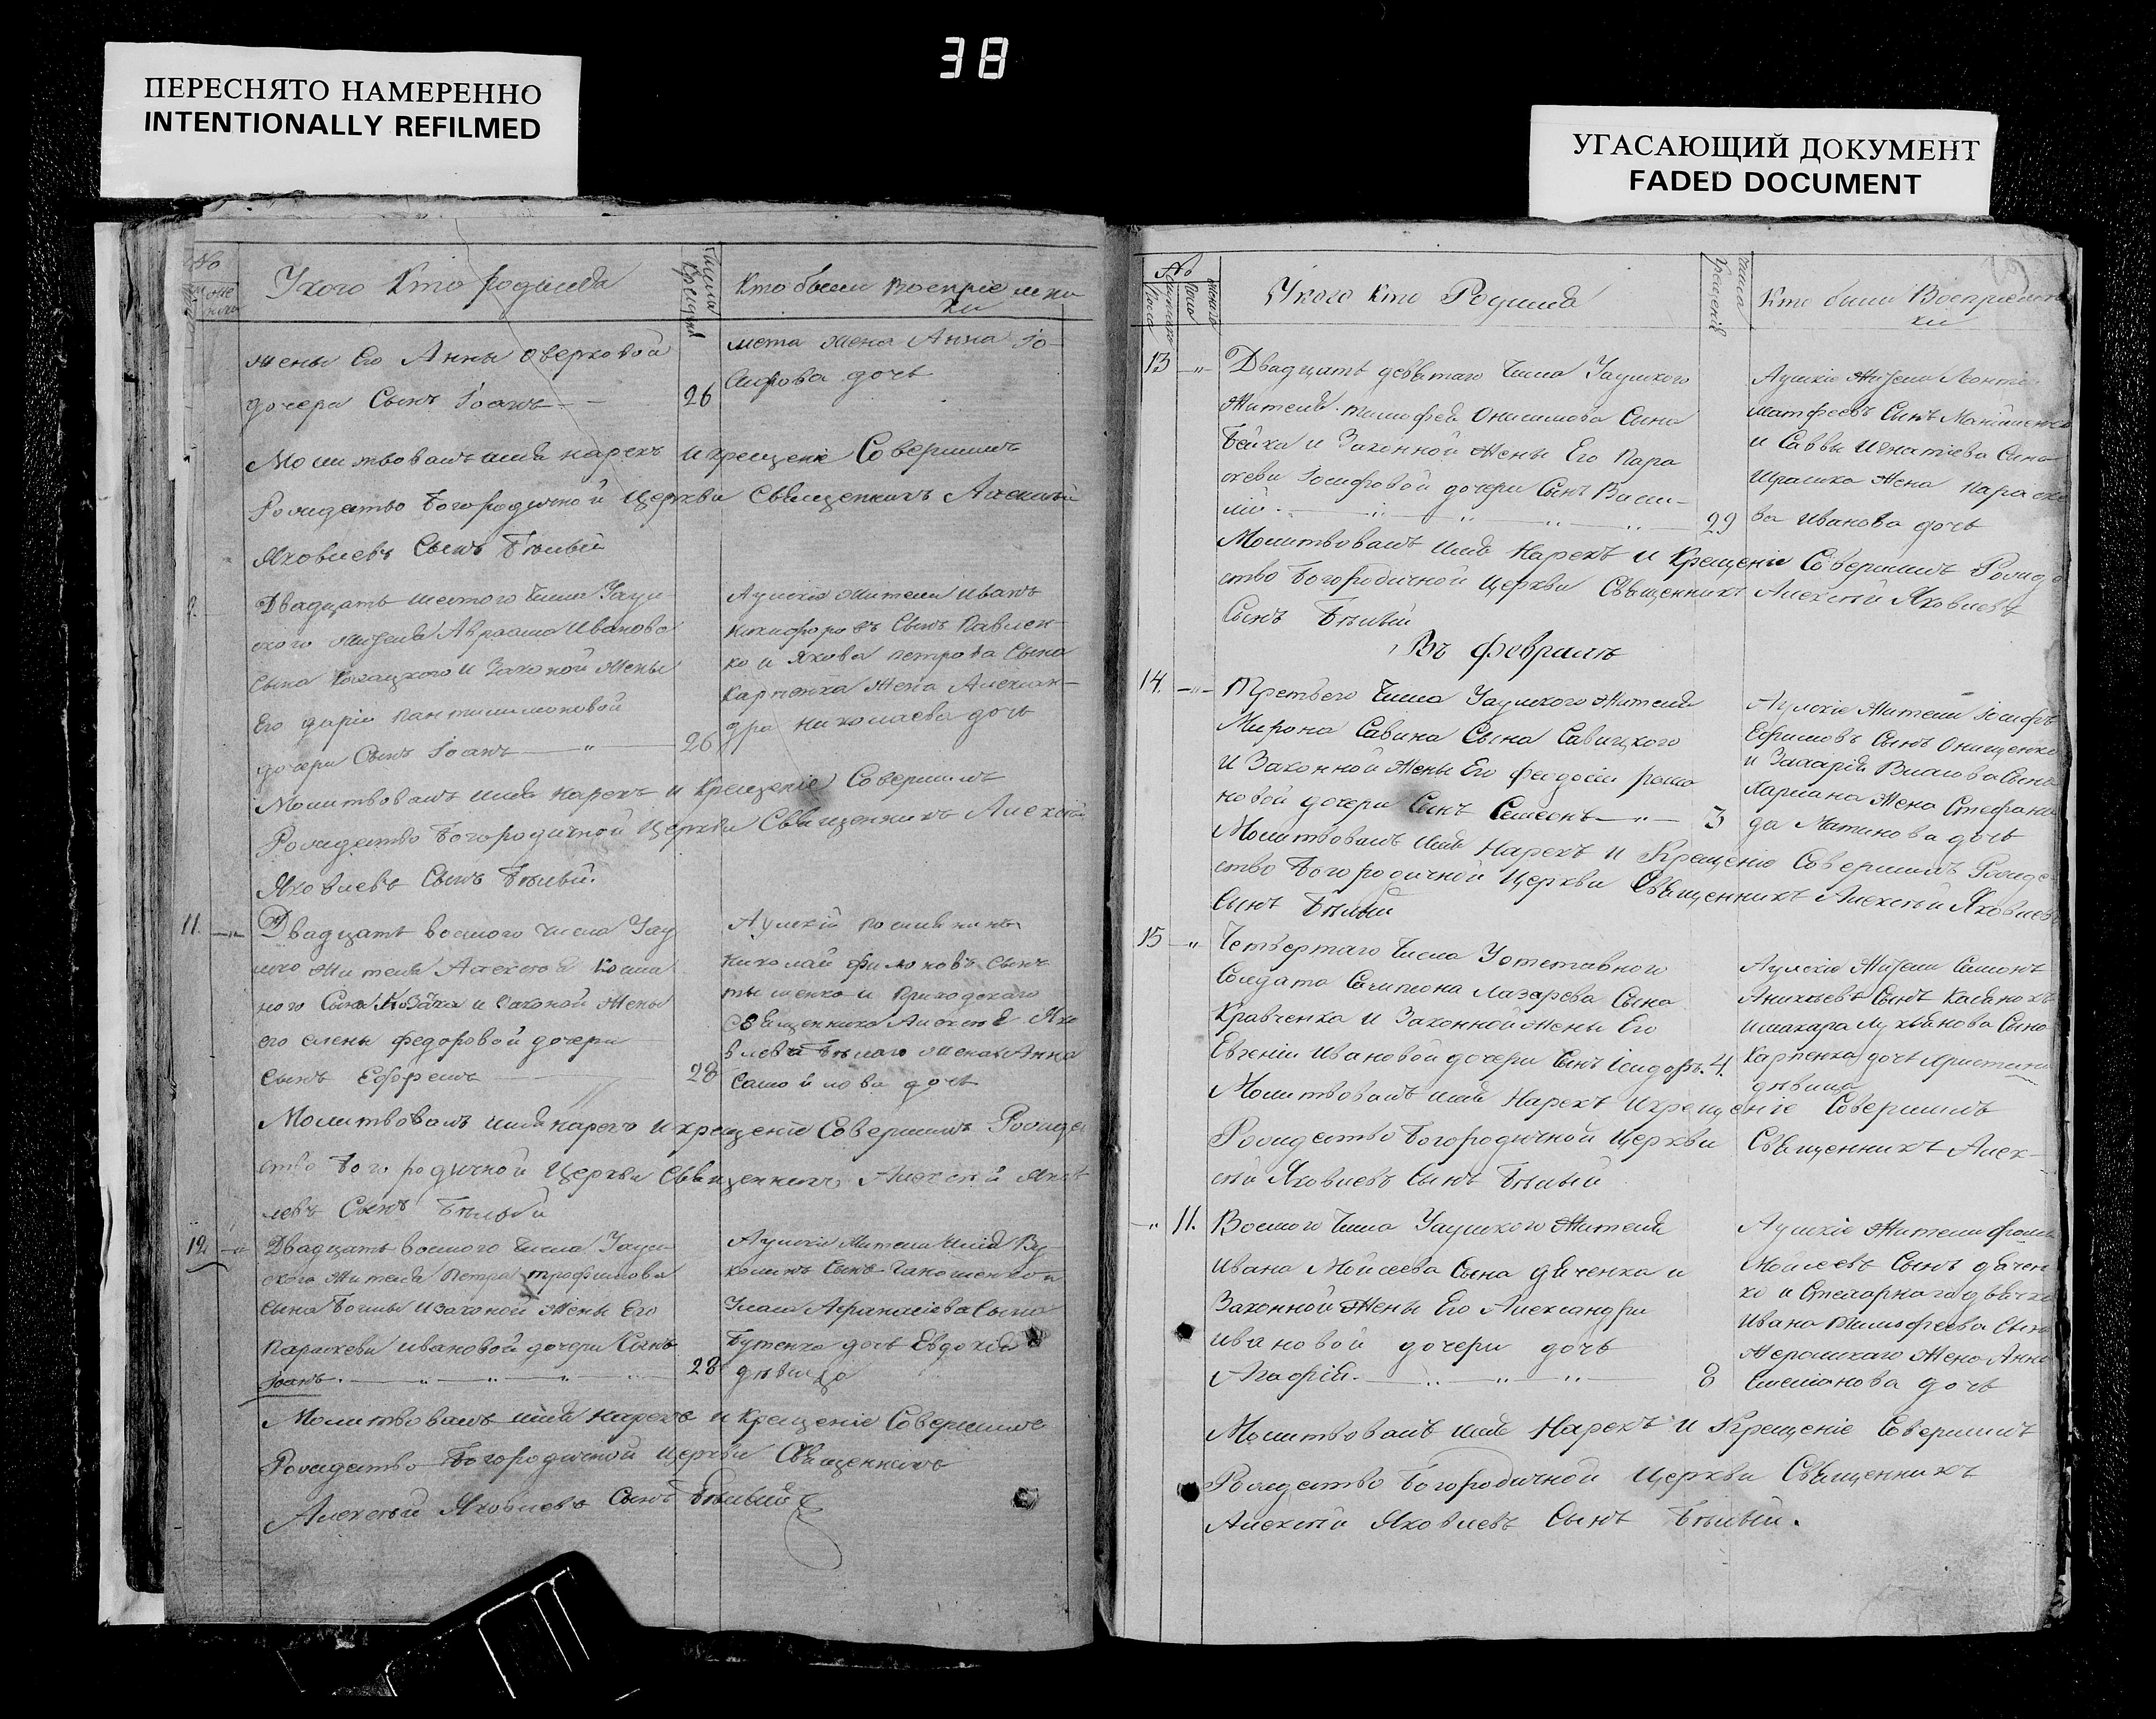 38
ПЕРЕСНЯТО НАМЕРЕННО
INTENTIONALLY REFILMED
УГАСАЮЩИЙ ДОКУМЕНТ
FADED DOCUMENT
№
Укого Кто родился
Числа Крещения
Кто были восприемни
ки
жены Его Анны Оверковой
дочери Сынъ Іоанъ 26
мета жена Анна Іо-
сифова дочь
Молитвовалъ имя нарекъ и крещеніе Совершилъ
Рождество Богородичной Церкви Священникъ Алексѣй
Яковлевъ Сынъ Бѣлый
Двадцать шестого Числа Уаул-
ского жителя Авраама Иванова
Сына и Законой Жены
Его Даріи Пантилимоновой
дочери Сынъ Іоанъ 26
Аулскіе жители Иванъ
Никифоровъ Сынъ Павлен-
ко и Якова Петрова Сына
Карпенка Жена Алексан-
дра Николаева дочь
Молитвовалъ имя нарекъ и Крещеніе Совершилъ
Рождество Богородичной Церкви Священникъ Алексѣй
Яковлевъ Сынъ Бѣлый.
11. Двадцать восмого числа Уаул
ского жителя Алексѣя
Сына Козака и Законой Жены
его Елены Федоровой дочери
Сынъ Ефремъ 28
Аулскій
Николай Филоновъ Сынъ
и Приходскаго
Священника Алексѣя Яко
влева Бѣлаго жена Анна
Самойлова дочь
Молитвовалъ имя нарекъ и крещеніе Совершилъ Рождε
ство Богородичной Церкви Священникъ Алексѣй Яков
левъ Сынъ Бѣлый
12. Двадцать восмого Числа Уаул-
ского Жителя Петра Трофимова
Сына и законой Жены Его
Параскеви Ивановой дочери Сынъ
Іоанъ. 28
Аулскіе Жители
Сынъ
Афанасіева Сына
Бутенка дочь Евдокія
дѣвица
Молитвовалъ имя Нарекъ и Крещеніе Совершилъ
Рождество Богородичной Церкви Священникъ
Алексѣй Яковлевъ Сынъ Бѣлый
№
Мужеского Пола
Женого Пола
Укого Кто Родился
Числа Крещенія
Кто были Воспріемни
ки
13 Двадцать девятаго Числа Уаулского
Жителя Тимофея Онисимова Сына
Бойка и Законной Жены Его Пара
скеви Іосифовой дочери Сынъ Васи-
лій. 29
Аулскіе Жители Леонтій
Матфеевъ Сынъ
и Саввы Игнатіева Сына
Жена Параске
ва Иванова дочь
Молитвовалъ имя Нарекъ и Крещеніе Совершилъ Рожде
ство Богородичной Церкви Священникъ Алексѣй Яковлевъ
Сынъ Бѣлый
Въ Февралѣ
14. Третьего Числа Уаулского Жителя
Мирона Савина Сына Савицкого
и Законной Жены Его Феодосіи Рома
новой дочери Сынъ Семеонъ 3
Аулскіе Жители Іосифъ
Ефимовъ Сынъ Онищенко
и Захарія Власова Сына
Жена Стефани
да Мартинова дочь
Молитвовалъ имя Нарекъ и Крещеніе Совершилъ Рожде
ство Богородичной Церкви Священникъ Алексѣй Яковлевъ
Сынъ Бѣлый
15 Четвертаго Числа Уотставного
Солдата Лазарева Сына
Кравченка и Законной Жены Его
Евгеніи Ивановой дочери Сынъ Ісидоръ. 4.
Аулскіе Жители Симонъ
Сынъ
и Макара Лукьянова Сына
Карпенка дочь Христина
дѣвица
Молитвовалъ имя Нарекъ и крещеніе Совершилъ
Рождество Богородичной Церкви Священникъ Алек-
сѣй Яковлевъ Сынъ Бѣлый
11. Восмого Числа Уаулского Жителя
Ивана Мойсеева Сына Дяченка и
Законной Жены Его Александри
Ивановой дочери дочь
Агафія. 8
Аулскіе Жители Фома
Мойсеевъ Сынъ Дячен
ко и дьячка
Ивана Тимофеева Сына
Жена Анна
Симеонова дочь
Молитвовалъ имя Нарекъ и Крещеніе Совершилъ
Рождество Богородичной Церкви Священникъ
Алексѣй Яковлевъ Сынъ Бѣлый.